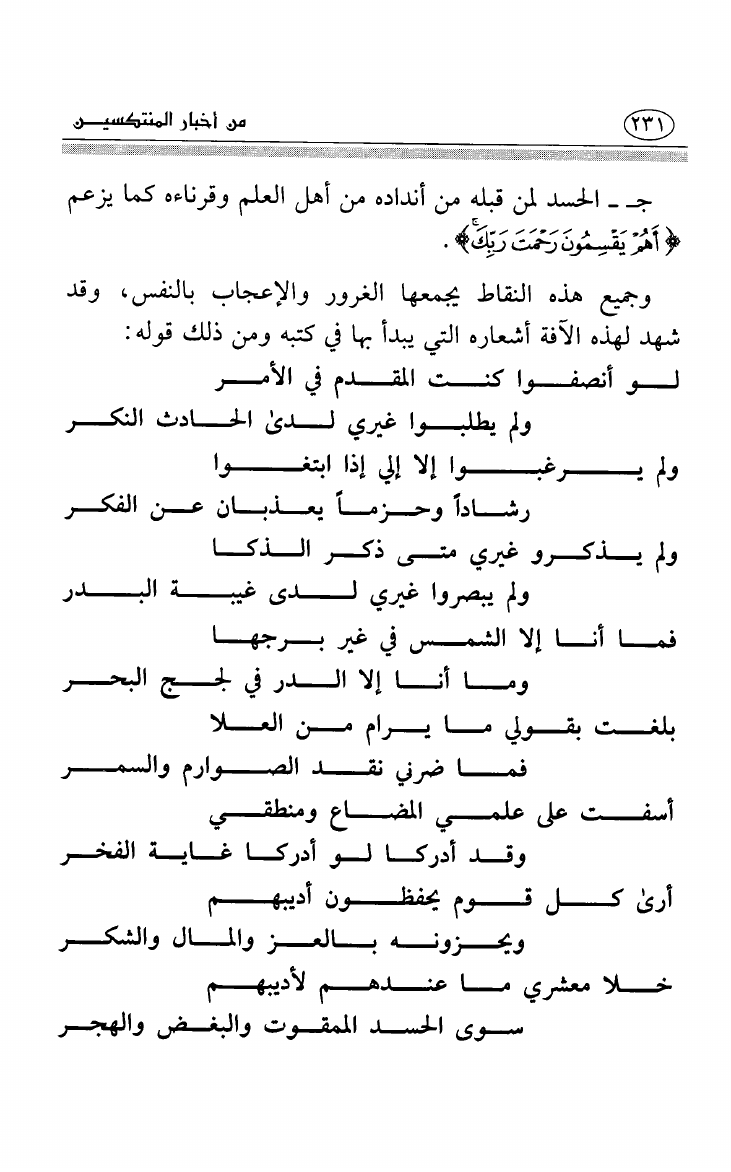 من أخبار المنتكسين ٢٣١
جـ ـ الحسد لمن قبله من أنداده من أهل العلم وقرناءه كما يزعم
﴿أَهُمْ يَقْسِمُونَ رَحْمَتَ رَبِّكَۚ﴾ .
وجميع هذه النقاط يجمعها الغرور والإعجاب بالنفس، وقد
شهد لهذه الآفة أشعاره التي يبدأ بها في كتبه ومن ذلك قوله:
لو أنصفوا كنت المقدم في الأمر
ولم يطلبوا غيري لدىٰ الحادث النكر
ولم يرغبوا إلا إلي إذا ابتغوا
رشاداً وحزماً يعذبان عن الفكر
ولم يذكرو غيري متى ذكر الذكا
ولم يبصروا غيري لدى غيبة البدر
فما أنا إلا الشمس في غير برجها
وما أنا إلا الدر في لجج البحر
بلغت بقولي ما يرام من العلا
فما ضرني نقد الصوارم والسمر
أسفت على علمي المضاع ومنطقي
وقد أدركا لو أدركا غاية الفخر
أرىٰ كل قوم يحفظون أديبهم
ويحزونه بالعز والمال والشكر
خلا معشري ما عندهم لأديبهم
سوى الحسد الممقوت والبغض والهجر